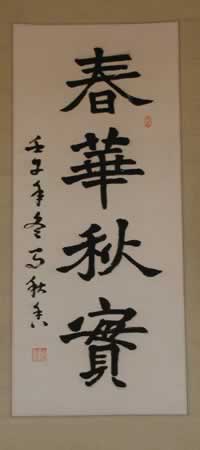 春華秋實
壬年冬秋